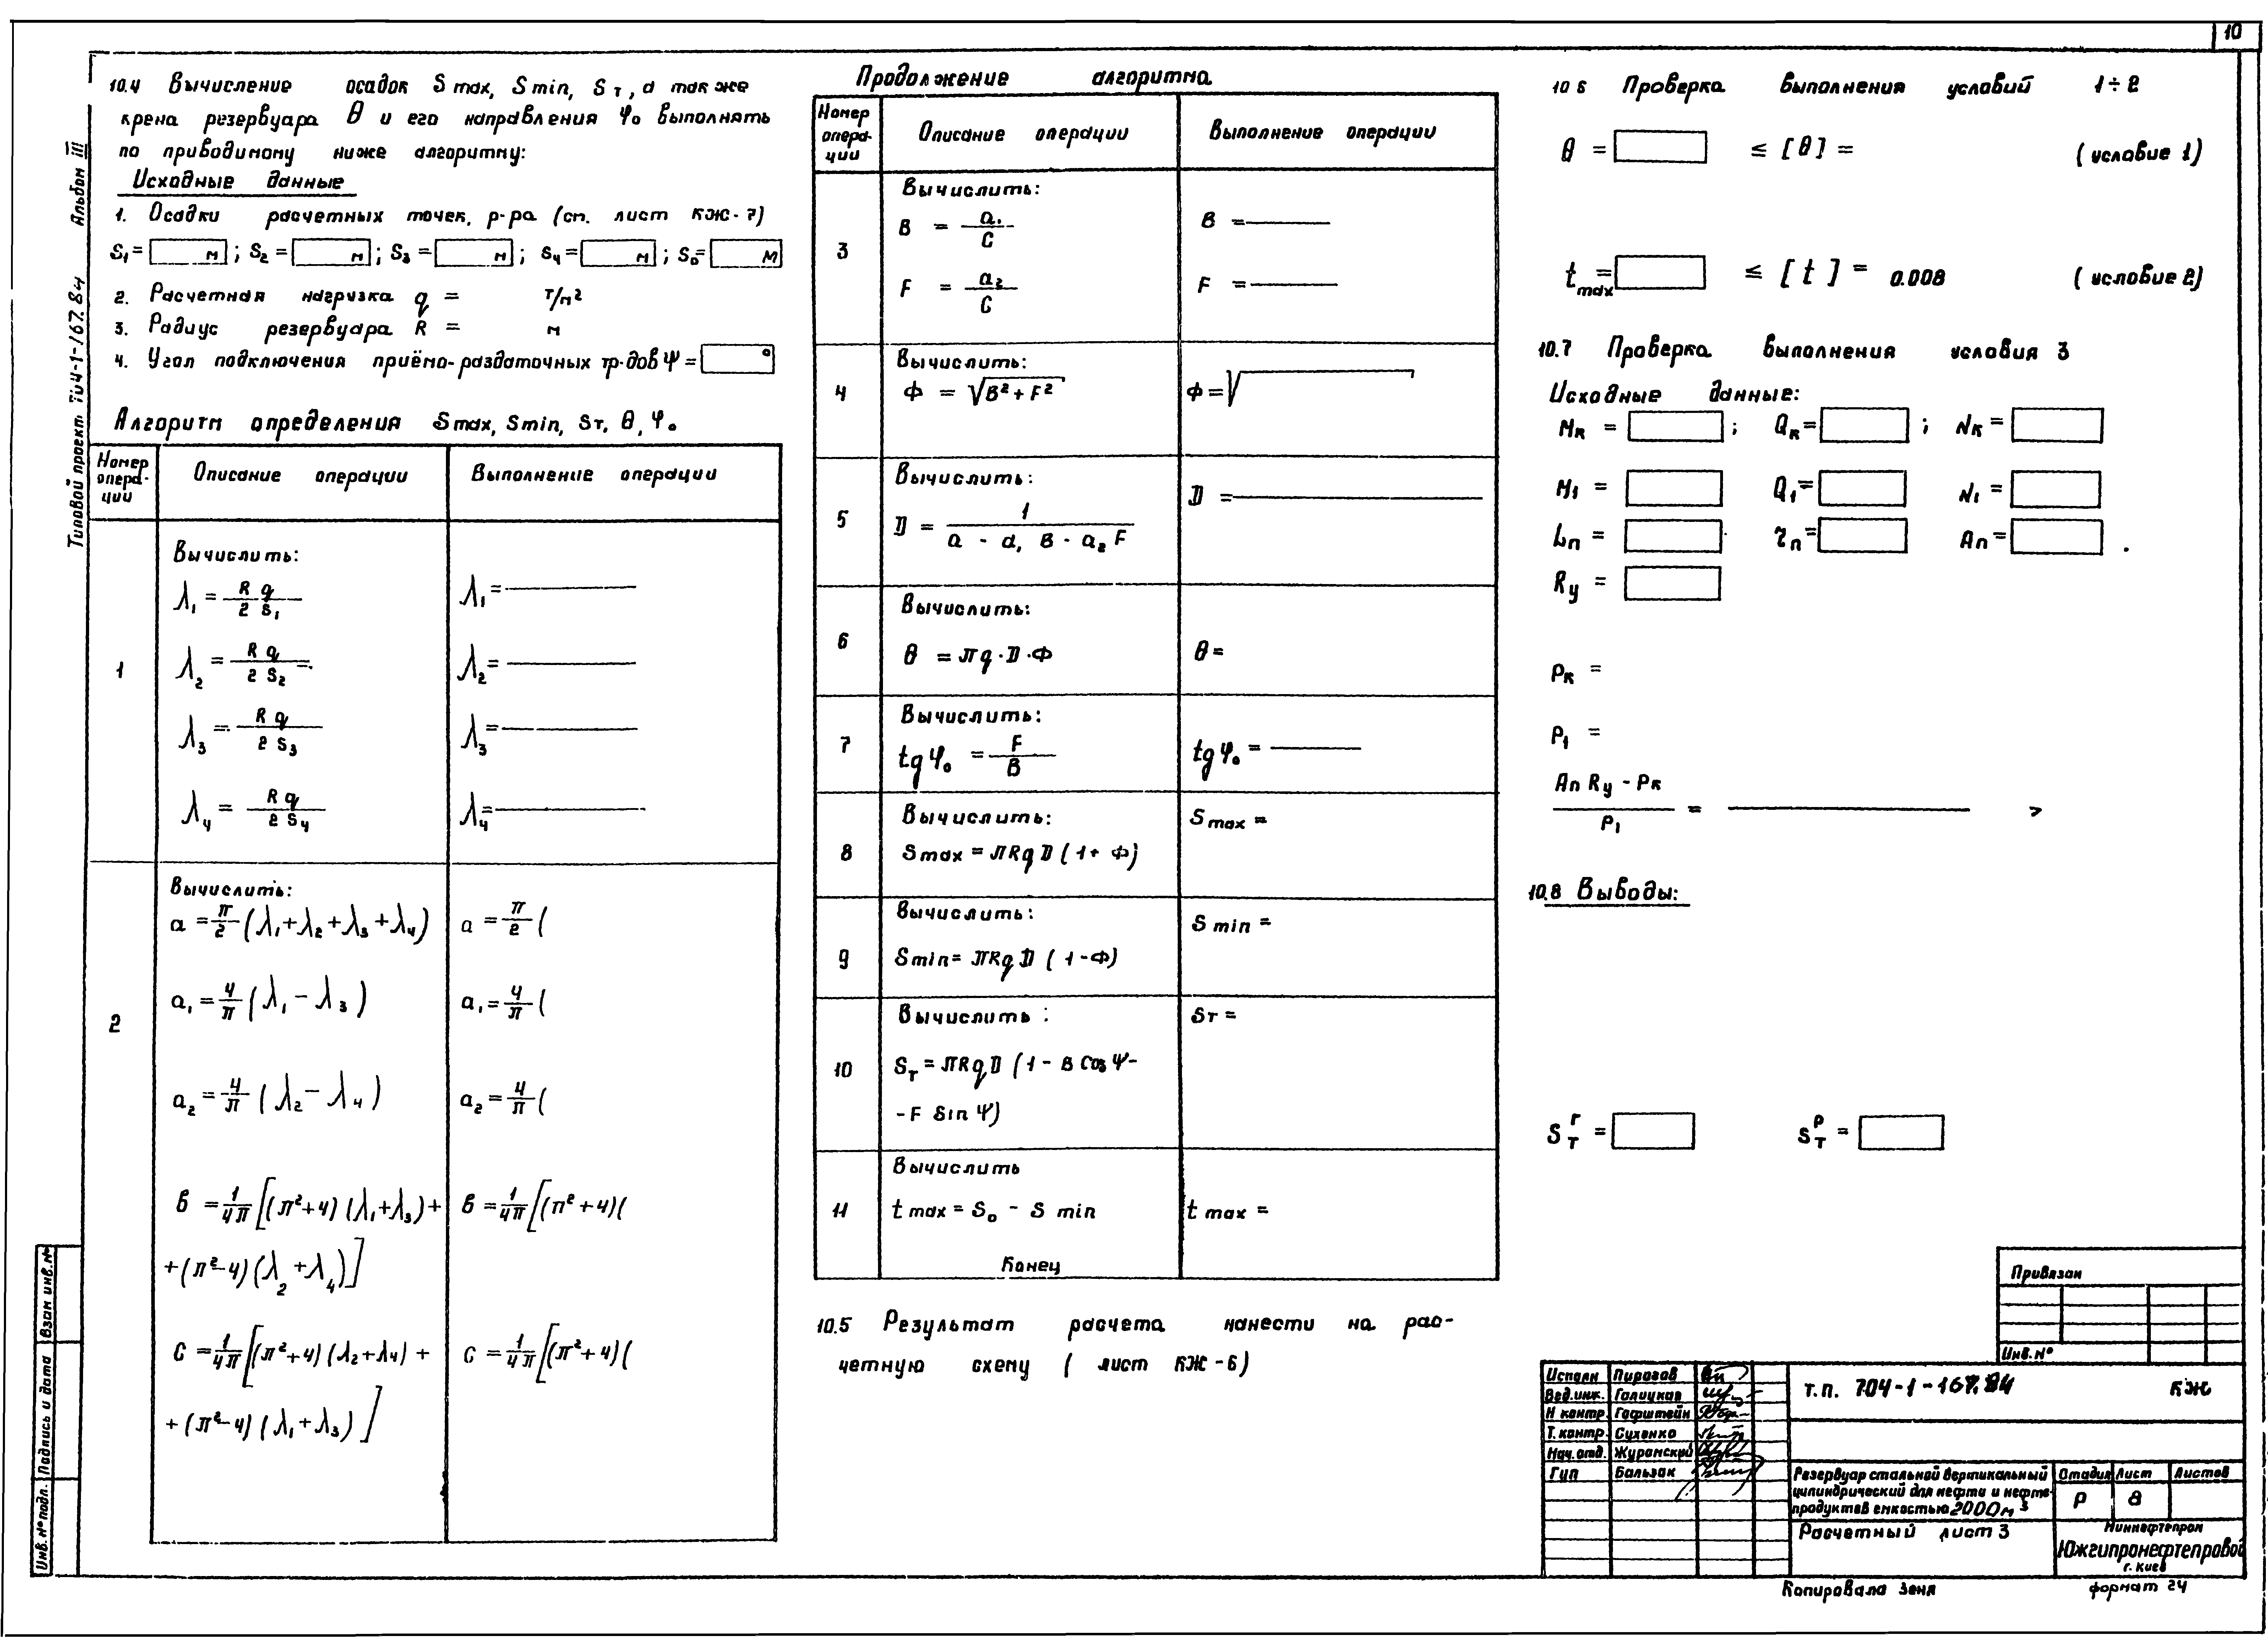 10
Типовой проект 704-1-167.84 Альбом III
10.4 Вычисление осадок Smax, Smin, Sт, а так же
крена резервуара θ и его направления φ₀ выполнять
по приводимому ниже алгоритму:
Исходные данные
1. Осадки расчетных точек, р-ра (см. лист КЖ-7)
S₁ = м ; S₂ = м ; S₃ = м ; S₄ = м ; S₀ = м
2. Расчетная нагрузка q = т/м²
3. Радиус резервуара R = м
4. Угол подключения приёмо-раздаточных тр-дов Ψ = °
Алгоритм определения Smax, Smin, Sт, θ, φ₀
Номер операции Описание операции Выполнение операции
1
Вычислить:
λ₁ = R q / 2 S₁ λ₁ =
λ₂ = R q / 2 S₂ λ₂ =
λ₃ = R q / 2 S₃ λ₃ =
λ₄ = R q / 2 S₄ λ₄ =
2
Вычислить:
a = π/2 (λ₁+λ₂+λ₃+λ₄) a = π/2 (
a₁ = 4/π (λ₁ - λ₃) a₁ = 4/π (
a₂ = 4/π (λ₂ - λ₄) a₂ = 4/π (
в = 1/4π [(π²+4) (λ₁+λ₃) + в = 1/4π [(π²+4)(
+ (π²-4) (λ₂+λ₄)]
C = 1/4π [(π²+4) (λ₂+λ₄) + C = 1/4π [(π²+4)(
+ (π²-4) (λ₁+λ₃)]
Продолжение алгоритма
Номер операции Описание операции Выполнение операции
3
Вычислить:
B = a₁ / C B =
F = a₂ / C F =
4
Вычислить:
Ф = √B²+F² Ф = √
5
Вычислить:
D = 1 / a - a₁ B - a₂ F D =
6
Вычислить:
θ = πq·D·Ф θ =
7
Вычислить:
tg φ₀ = F / B tg φ₀ =
8
Вычислить: Smax =
Smax = πRqD (1+Ф)
9
Вычислить: Smin =
Smin = πRqD (1-Ф)
10
Вычислить: Sт =
Sт = πRqD (1 - B Cos Ψ -
- F Sin Ψ)
11
Вычислить
t max = S₀ - S min t max =
Конец
10.5 Результат расчета нанести на рас-
четную схему ( лист КЖ-6)
10 6 Проверка выполнения условий 1÷2
θ = ≤ [θ] = (условие 1)
t max = ≤ [t] = 0.008 (условие 2)
10.7 Проверка выполнения условия 3
Исходные данные:
Mк = ; Qк = ; Nк =
M₁ = Q₁ = N₁ =
Lп = τп = Aп = .
Rу =
Pк =
P₁ =
Aп Rу - Pк / P₁ = >
10.8 Выводы:
Sтᴦ = Sтᴾ =
Привязан
Инв. №
Исполн Пирогов
Вед.инж. Галицкая
Н контр. Гофштейн
Т. контр. Сухенко
Нач. отд. Журамский
Гип Бальзак
т.п. 704-1-167.84 КЖ
Резервуар стальной вертикальный
цилиндрический для нефти и нефте-
продуктов емкостью 2000 м³
Стадия Лист Листов
Р 8
Расчетный лист 3
Миннефтепром
Южгипронефтепровод
г. Киев
Копировала Зеня формат 24
Инв. № подл. Подпись и дата Взам инв. №